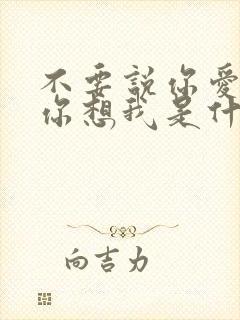 不要説你愛
你想我是什
向吉力